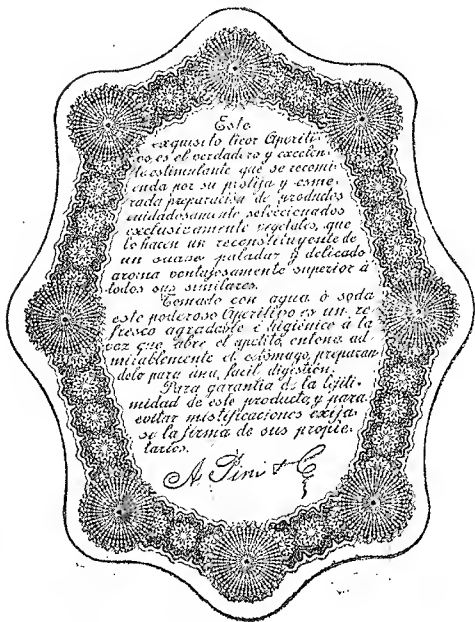 Este
exquisito licor Aperiti-
vo es el verdadero y excelen-
te estimulante que se recomi-
enda por su prolija y esme-
rada preparación de productos
cuidadosamente seleccionados
exclusivamente vegetales, que
lo hacen un reconstituyente de
un suave paladar y delicado
aroma ventajosamente superior á
todos sus similares.
Tomado con agua ò soda
este poderoso Aperitivo es un re-
fresco agradable é higiénico á la
vez que abre el apetito, entona ad-
mirablemente el estómago, preparan-
dolo para una facil digestión.
Para garantia de la lejiti-
midad de este producto y para
evitar mistificaciones exija-
se la firma de sus propie-
tarios.
A. Pini & C